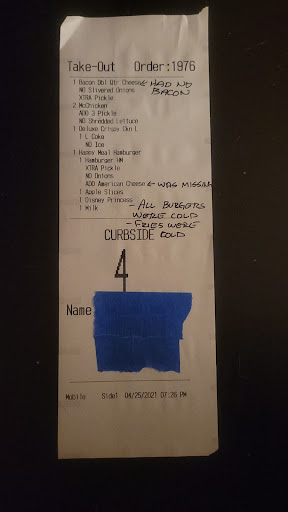 Take-Out Order:1976
1 Bacon Dbl Qtr Cheese ← HAD NO
BACON
NO Slivered Onions
XTRA Pickle
2 McChicken
ADD 3 Pickle
NO Shredded Lettuce
1 Deluxe Crispy Ckn L
1 L Coke
NO Ice
1 Happy Meal Hamburger
1 Hamburger HM
XTRA Pickle
NO Onions
ADD American Cheese ← WAS MISSING
1 Apple Slices
1 Disney Princess
1 Milk
- ALL BURGERS
WERE COLD
- FRIES WERE
COLD
CURBSIDE
4
Name
Mobile Side1 04/25/2021 07:26 PM